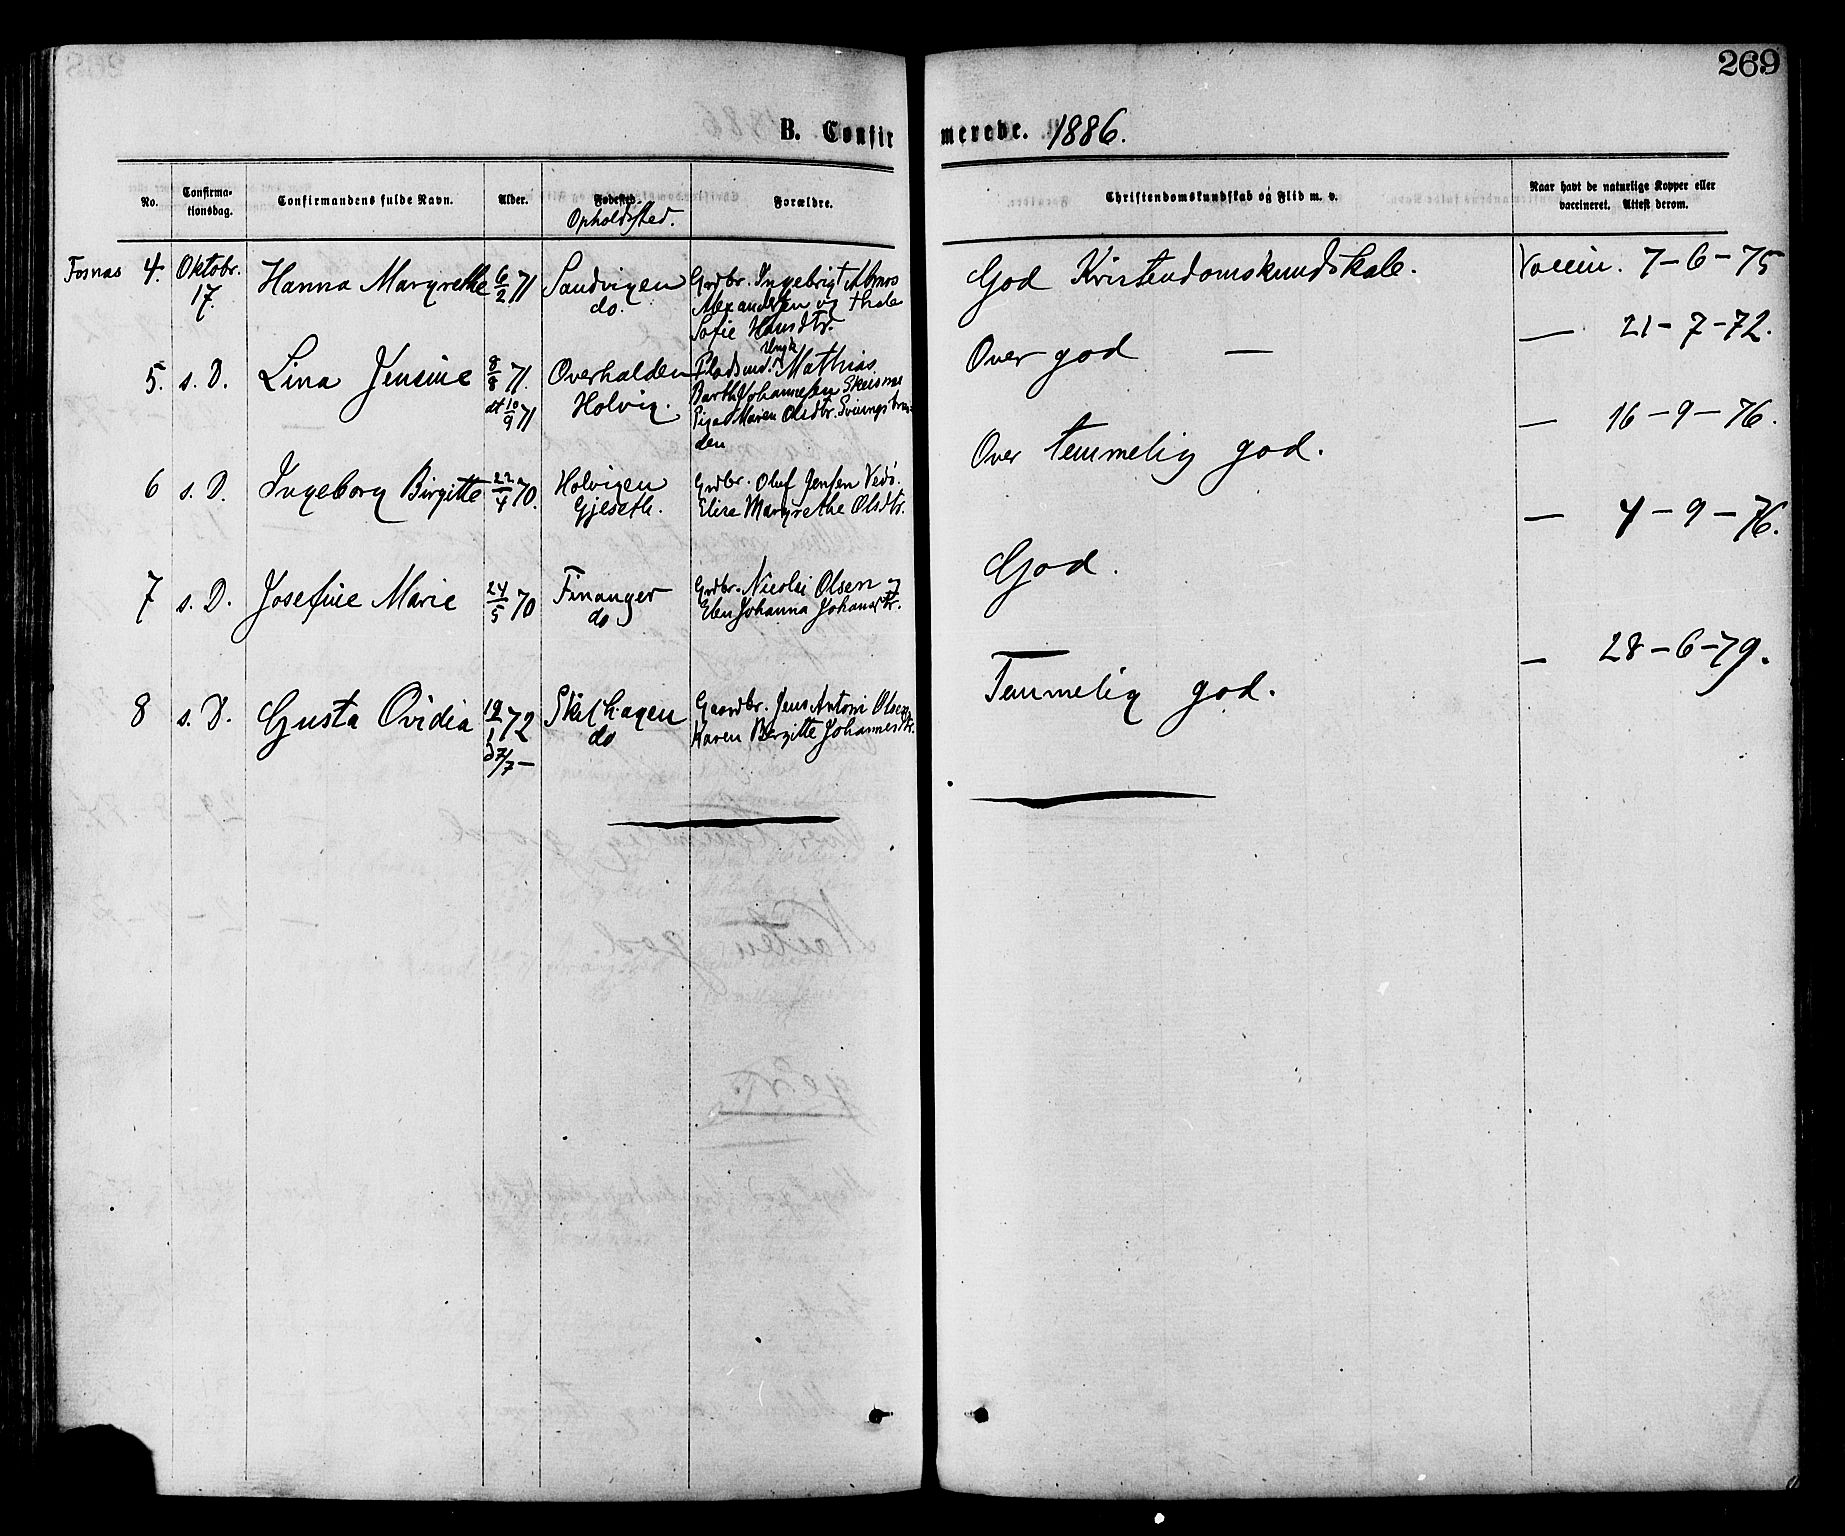 269
B. Confirmerede. 1886.
No.
Confirma-
tionsdag.
Confirmandens fulde Navn.
Alder.
Fødested.
Opholdssted.
Forældre.
Christendomskundskab og Flid m. v.
Naar havt de naturlige Kopper eller
vaccineret. Attest derom.
Fosnæs 4. Oktobr. 17. Hanna Margrethe 6/2 71 Sandvigen
do.
Grdbr. Ingebrigt
Alexandersen og
Sofie Hansdtr.
God Kristendomskundskab.
Vaccin. 7-6-75
5. s. D. Lina Jensine 8/8 71.
dt 10/9 71
Overhalden
Holvig.
Pladsmd. Mathias
Barth Johannesen
Pige Maren Olsdtr.
den
Over god —
— 21-7-72.
6 s. D. Ingeborg Birgitte 22/4 70. Holvigen
Gjeseth.
Grdbr. Oluf Jensen Vedø.
Elisa Margrethe Olsdtr.
Over temmelig god.
— 16-9-76.
7 s. D. Josefine Marie 24/5 70 Finanger
do
Grdbr. Nicolai Olsen og
Johanna
God.
— 4-9-76.
8 s. D. Gusta Ovidia 19/1 72
Skilhagen
do
Gaardbr. Jens Antoni Olsen
Karen Bergitte Johannesdtr.
Temmelig god.
— 28-6-79.